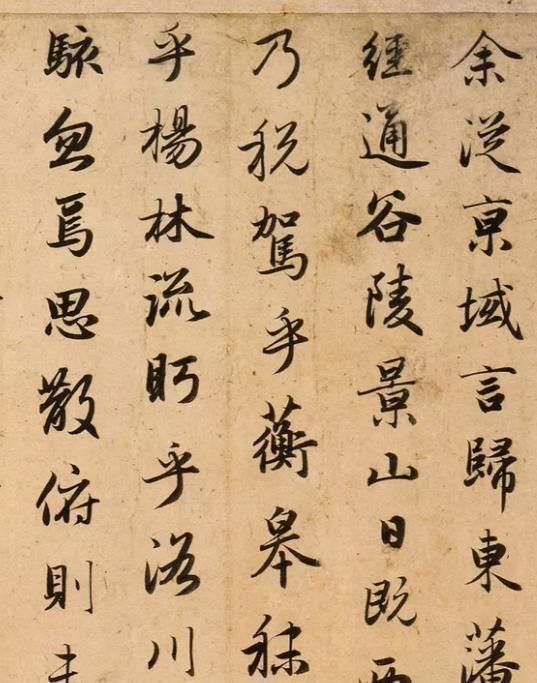 余從京域言歸東藩
經通谷陵景山日既西
乃稅駕乎蘅皋秣
乎楊林流眄乎洛川
駭忽焉思散俯則未